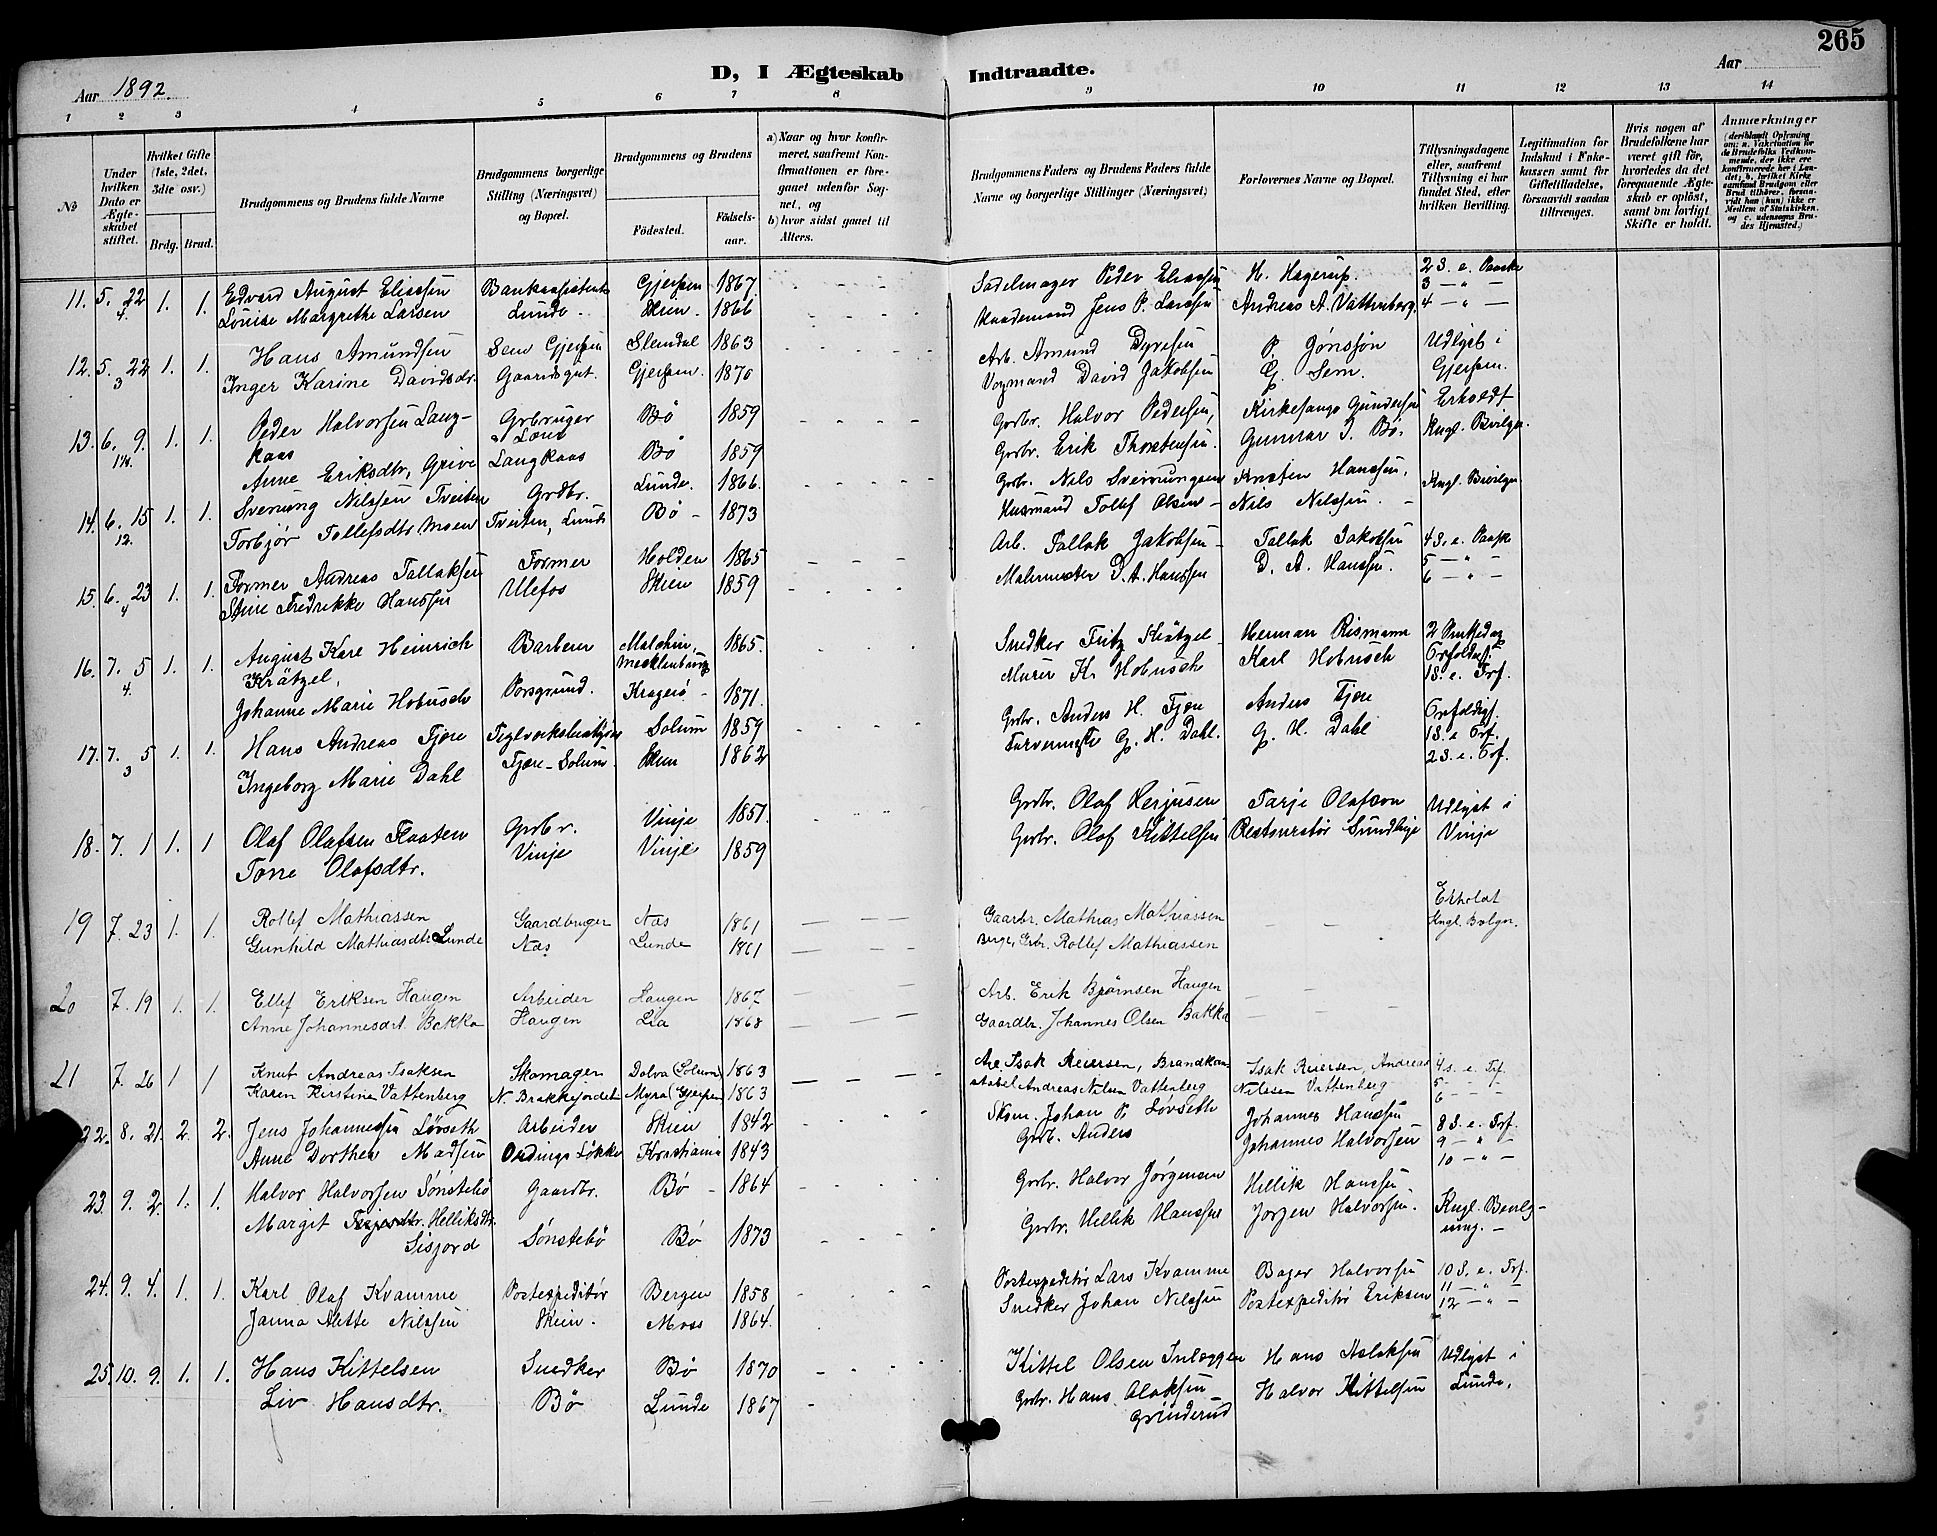 265
Aar 1892.
D, I Ægteskab Indtraadte.
Aar
1 2 3 4 5 6 7 8 9 10 11 12 13 14
No
Under hvilken Dato er Ægteskabet stiftet.
Hvilket Gifte (1ste, 2det, 3die osv.)
Brdg. Brud.
Brudgommens og Brudens fulde Navne
Brudgommens borgerlige Stilling (Næringsvei) og Bopæl.
Brudgommens og Brudens
Fødested.
Fødselsaar.
a) Naar og hvor konfirmeret, saafremt Konfirmationen er foregaaet udenfor Sognet, og
b) hvor sidst gaaet til Alters.
Brudgommens Faders og Brudens Faders fulde Navne og borgerlige Stillinger (Næringsvei)
Forlovernes Navne og Bopæl.
Tillysningsdagene eller, saafremt Tillysning ei har fundet Sted, efter hvilken Bevilling.
Legitimation for Indskud i Enkekassen samt for Giftetilladelse, forsaavidt saadan tiltrænges.
Hvis nogen af Brudefolkene har været gift før, hvorledes da det foregaaende Ægteskab er opløst, samt om lovligt Skifte er holdt.
Anmærkninger
11. 5. 22 1. 1. Edvard August Eliassen Bankassistent Gjerpen 1867 Sadelmager Peder Eliassen H. Hagerup 2 S. e. Paaske
4. Louise Margrethe Larsen Lunde. Skien. 1866 Jens P. Larssen Andreas A. Vattenberg. 3 — " —
4 — " —
12. 5. 22 1. 1. Hans Amundsen Sem Gjerpen Slemdal 1863 Arb. Amund Dyresen P. Jønsson Udlyst i
3 Inger Karine Davidsdr. Gaardsgut. Gjerpen. 1870 Vognmand David Jakobsen G. Sem. Gjerpen.
13. 6. 9. 1. 1. Peder Halvorsen Lang- Grbruger Bø 1859 Grdbr. Halvor Pedersen, Kirkesanger Gundersen Erholdt
kaas Lone
Anne Eriksdtr, Grive Langkaas Bø 1859 Grdbr. Erik Thorstensen. Gunnar J. Bø. Kngl. Bevilgn.
14. 6. 15 1. 1. Sveinung Nilssen Tveiten Grdbr. Lunde. 1866. Grbr. Nils Sveinungsen Knsten Hanssen. Kngl. Bevilgn
12. Torbjør Tollefsdtr. Moen Tveiten, Lunde Bø - 1873 Husmand Tollef Olsen - Nils Nilssen. -
15. 6. 23 1. 1. Former Andreas Tallaksen Former Holden 1865 Arb. Tallak Jakobsen - Tallak Jakobsen 4 S. e. Paaske
4 Stine Fredrikke Hanssen Ulefos Skien 1859 Malermester D. A. Hanssen D. A. Hanssen. 5 — " —
6 — " —
16. 7. 5 1. 1. August Karl Heinrich Barberer Malchin, 1865. Snedker Fritz Krätzel - Herman Rismann 2 Pintsedag
4. Krätzel, Mecklenburg Trefoldigf.
Johanne Marie Hobusch Porsgrund. Kragerø - 1871. Murer K. Hobusch Karl Hobusch 1 S. e. Tref.
17. 7. 5 1. 1. Hans Andreas Fjære Teglverksbestyrer Solum 1859 Grbr. Anders H. Fjære Anders Fjære Trefoldigf.
3 Ingeborg Marie Dahl Fjære - Solum. Skien 1862 Farvermester G. H. Dahl. G. H. Dahl 1 S. e Tref.
2 S. e. Tref.
18. 7. 1 1. 1 Olaf Olafsen Flaaten Grbr. Vinje 1851. Grdbr. Olaf Herjusen Tarje Olafson Udlyst i
Tone Olafsdtr. Vinje Vinje 1859 Grdbr. Olaf Kittelsen Restauratør Sundlige Vinje
19 7. 23 1. 1. Rollef Mathiassen Gaardbruger Næs 1861 Gaardbr. Mathias Mathiassen Erholdt
Gunhild Mathiasdtr Lunde Næs Lunde 1861 Berge, Grbr. Rollef Mathiassen Kngl. Bvlgn.
20 7. 19 1. 1. Ellef Eriksen Haugen Arbeider Haugen 1867 Arb. Erik Bjørnsen Haugen
Anne Johannesdrt. Bakka Haugen Lia 1868 Gaardbr. Johannes Olsen Bakka
21 7. 26 1 1 Knut Andreas Isaksen Skomager Dolva (Solum) 1863 Isak Reiersen, Brandkon- Isak Reiersen, Andreas 4 s. e. Trf.
Karen Kirstine Vattenberg N. Brakkejordet Myra (Gjerpen) 1863 stabel Andreas Nilsen Vattenberg Nilsen Vattenberg 5 - - -
6 - - -
22. 8. 21. 2. 2. Jens Johannessen Løvseth Arbeider Skien 1842 Skom. Johan P. Løvseth Johannes Hanssen 8 S. e. Tref.
Anne Dorthea Madsen Ordings Løkke Kristiania 1843 Grdb. Anders Johannes Halvorsen 9 — " —
10 — " —
23. 9. 2. 1. 1. Halvor Halvorsen Sønstebø Gaardbr. Bø - 1864 Grdbr. Halvor Jørgensen Hellik Hanssen Kngl. Bevilg-
Margit Terjesdtr. Helliksdtr. Sønstebø Bø 1873 Grdbr. Hellik Hanssen Jørgen Halvorsen. ning. -
Sisjord
24. 9. 4. 1. 1. Karl Olaf Kvamme Postexpeditør Bergen 1858 Postexpeditør Lars Kvamme Bager Halvorsen 10 S. e. Tref.
Janna Mette Nilssen Skien. Moss 1864. Snedker Johan Nilssen Postexpeditør Eriksen 11 — " —
12 — " —
25. 10. 9. 1. 1. Hans Kittelsen Snedker Bø 1870 Kittel Olsen Inlæggen Hans Aslaksen Udlyst i
Liv Hansdtr. Bø Lunde 1867 Grbr. Hans Olaksen Halvor Kittelsen Lunde.
Grinderud